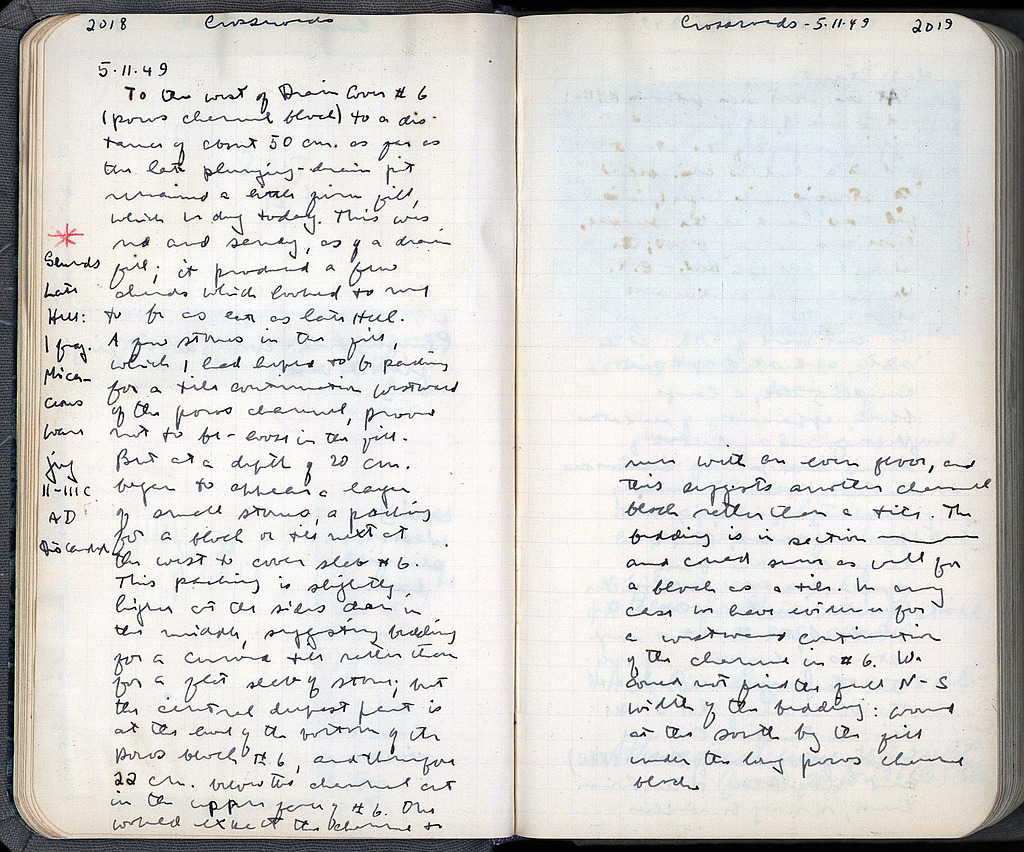 2018 Crossroads
5.11.49
To the west of Drain Cover #6
(poros channel block) to a dis-
tance of about 50 cm. as far as
the late plunging-drain pit
remained a little firm fill,
which we dug today. This was
red and sandy, as of a drain
fill; it produced a few
sherds which looked to me
to be as late as late Hell.
A few stones in the fill,
which I had hoped to be packing
for a tile continuation westward
of the poros channel, proved
not to be - loose in the fill.
But at a depth of 20 cm.
began to appear a layer
of small stones, a packing
for a block or tile next at
the west to cover slab #6.
This packing is slightly
higher at the sides than in
the middle, suggesting bedding
for a curved tile rather than
for a flat slab of stone; but
the central deepest part is
at the level of the bottom of the
poros block #6, and therefore
22 cm. below the channel cut
in the upper face of #6. One
would expect the channel to
*
Sherds
Late
Hell:
1 frag.
Mica-
ceous
ware
jug
II-III C.
AD
Discarded
Crossroads - 5.11.49 2019
run with an even floor, and
this suggests another channel
block rather than a tile. The
bedding is in section
and could serve as well for
a block as a tile. In any
case we have evidence for
a westward continuation
of the channel in #6. We
could not find the full N-S
width of the bedding:
at the south by the fill
under the long poros channel
block.